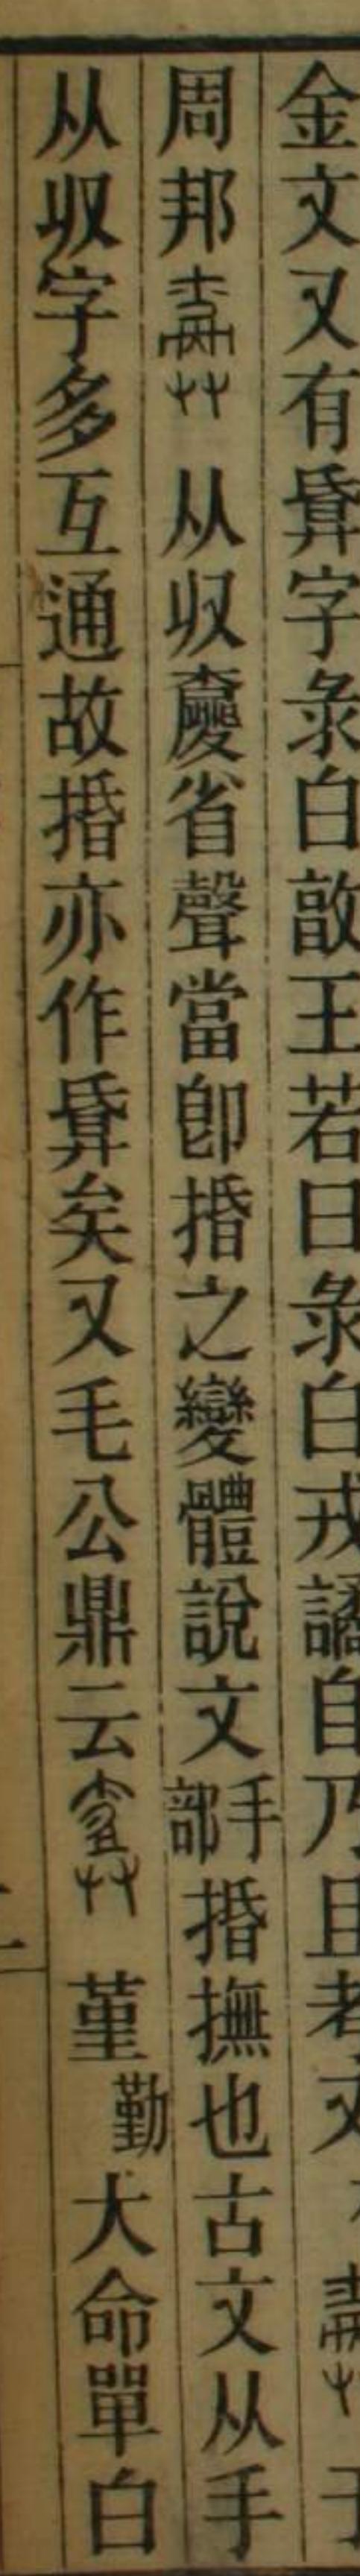 金文又有㝃字彔白㪤王若曰彔白戎譎自乃且考又 于
周邦 从収㝱省聲當卽捪之變體說文手部捪撫也古文从手
从収字多互通故捪亦作 矣又毛公鼎云 堇勤大命單白